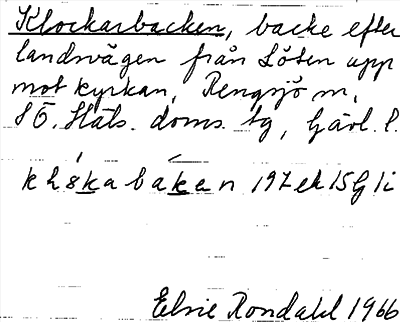 Klockarbacken, backe efter
landsvägen från Söten upp
mot kyrkan, Rengsjö sn,
SÖ. Häls. doms. tg, Gävl. l.
k l s k a b a k e n
Elsie Rondahl 1966